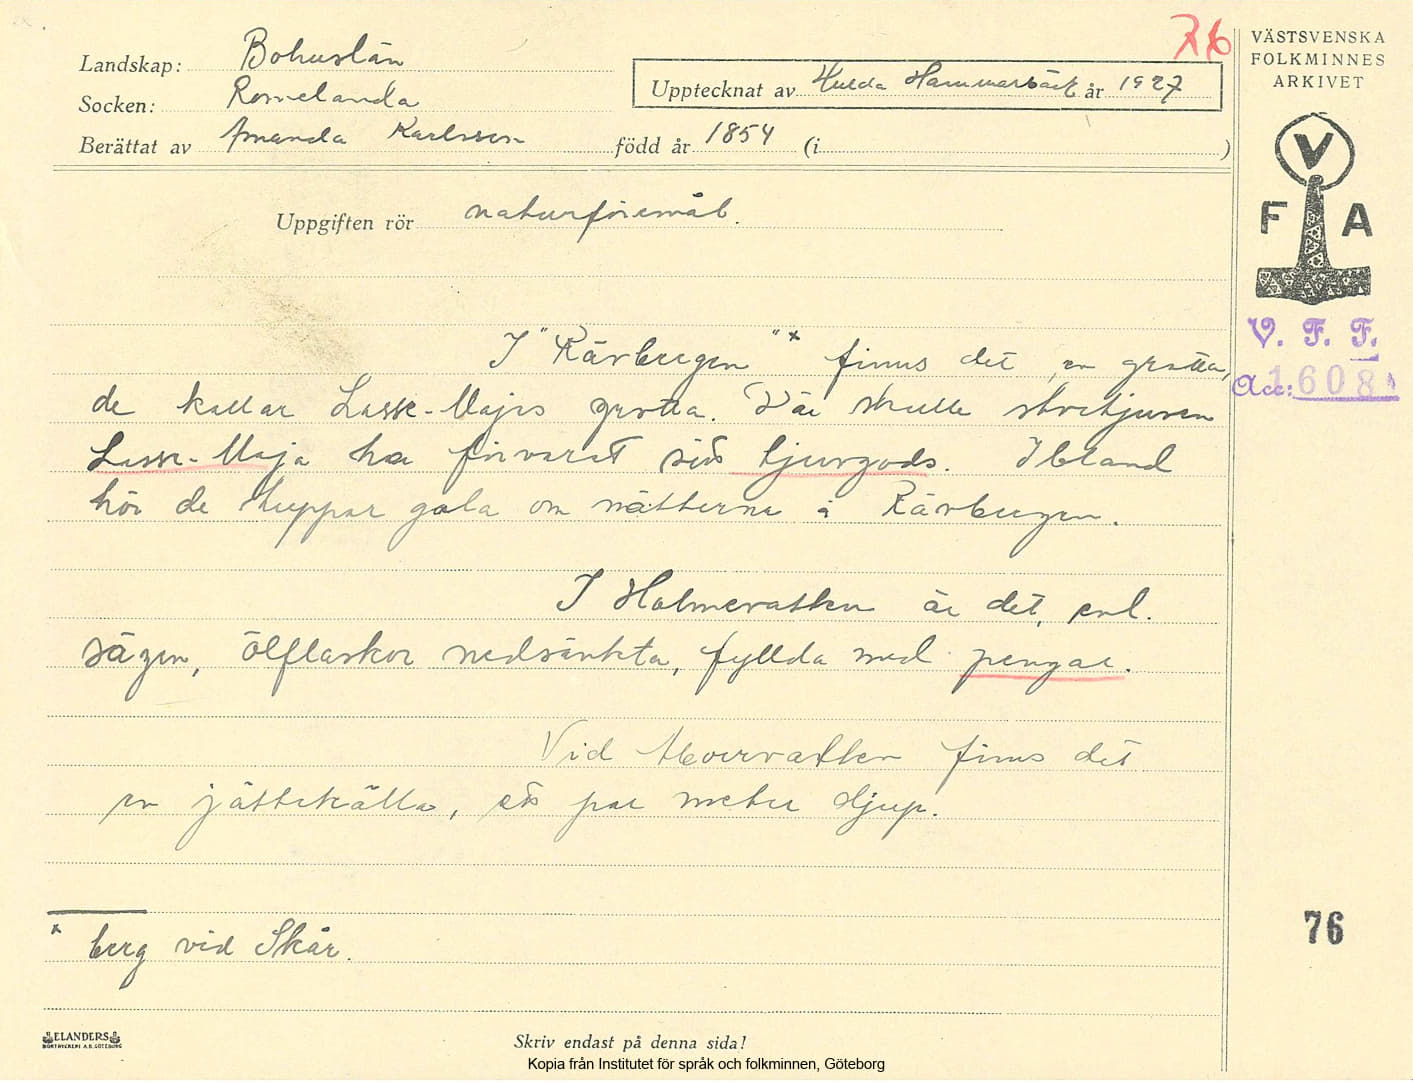 Landskap: Bohuslän
Socken: Romelanda
Upptecknat av Hulda Hammarbäck år 1927
Berättat av Amanda Karlsson född år 1854 (i )
VÄSTSVENSKA
FOLKMINNES
ARKIVET
V
F A
V. F. F.
Acc: 1608
Uppgiften rör naturföremål.
I "Rävbergen"x finns det en grotta,
de kallar Lasse-Majas grotta. Där skulle stortjuven
Lasse-Maja ha förvarat sitt tjuvgods. Ibland
hör de tuppar gala om nätterna i Rävbergen.
I Holmevatten är det, enl.
sägen, ölflaskor nedsänkta, fyllda med pengar.
Vid vatten finns det
en jättekälla, ett par meter djup.
x berg vid Skår.
76
ELANDERS
BOKTRYCKERI A.B. GÖTEBORG
Skriv endast på denna sida!
Kopia från Institutet för språk och folkminnen, Göteborg